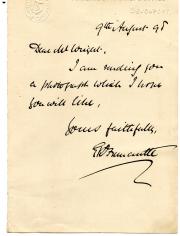 9th August 95
Dear Mr Wright,
I am sending you
a photograph which I hope
you will like,
Yours faithfully,